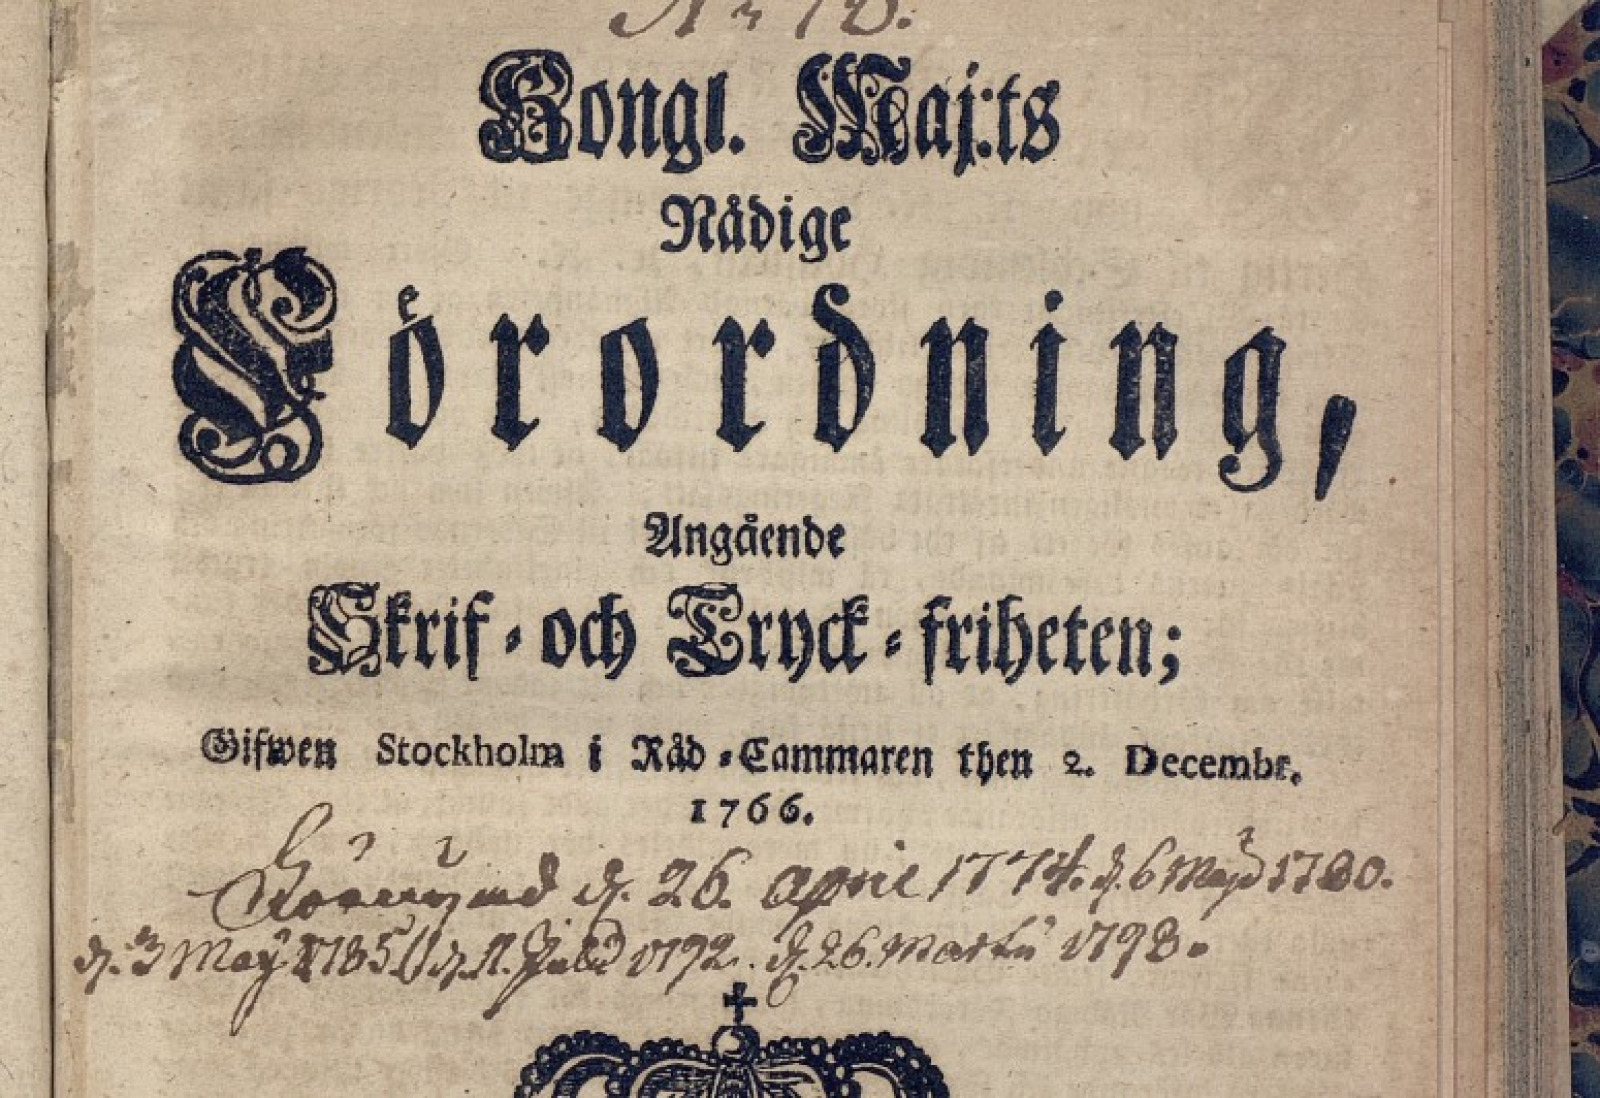 Kongl. Maj:ts
Nådige
Förordning,
Angående
Skrif- och Tryck-friheten;
Gifwen Stockholm i Råd-Cammaren then 2. Decembr.
1766.
d. 26. april 1774. d. 6 Maji 1780.
d. 3 May 1785 d. 11. 1792. d. 26. Martii 1798.